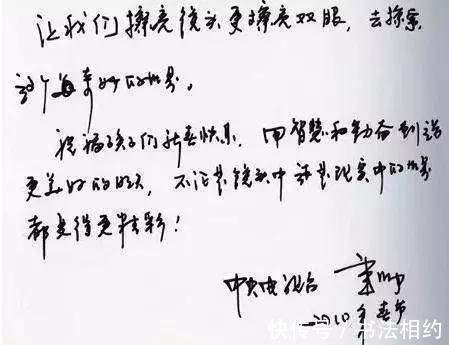 让我们擦亮镜头更擦亮双眼，去探索
这个奇妙的世界。
祝福孩子们新春快乐，用智慧和勤奋创造
更美好的明天，不论是镜头中还是现实中的世界
都变得更精彩！
中央电视台
二〇一〇年春节
快传号/书法相约